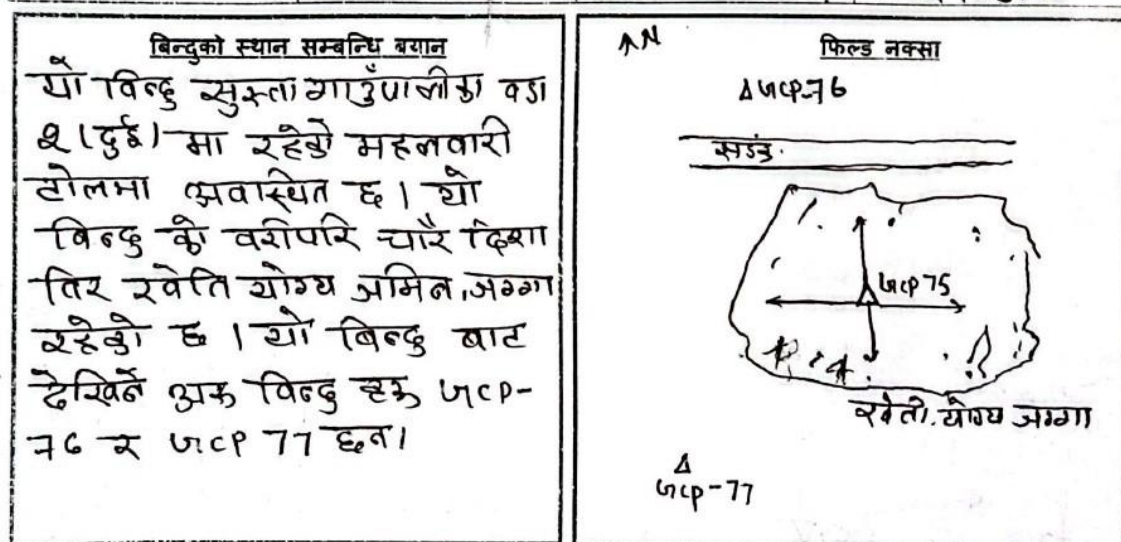 बिन्दुको स्थान सम्बन्धि बयान
यो बिन्दु सुस्ता गाउँपालीका वडा
२ (दुई) मा रहेको महलवारी
टोलमा अवास्थित छ । यो
बिन्दु को वरीपरि चारै दिशा
तिर खेति योग्य जमिन, जग्गा
रहेको छ । यो बिन्दु बाट
देखिने अरु बिन्दु हरू GCP-
76 र GCP 77 छन।
N
फिल्ड नक्सा
GCP-76
सडक
GCP 75
खेती योग्य जग्गा
GCP-77